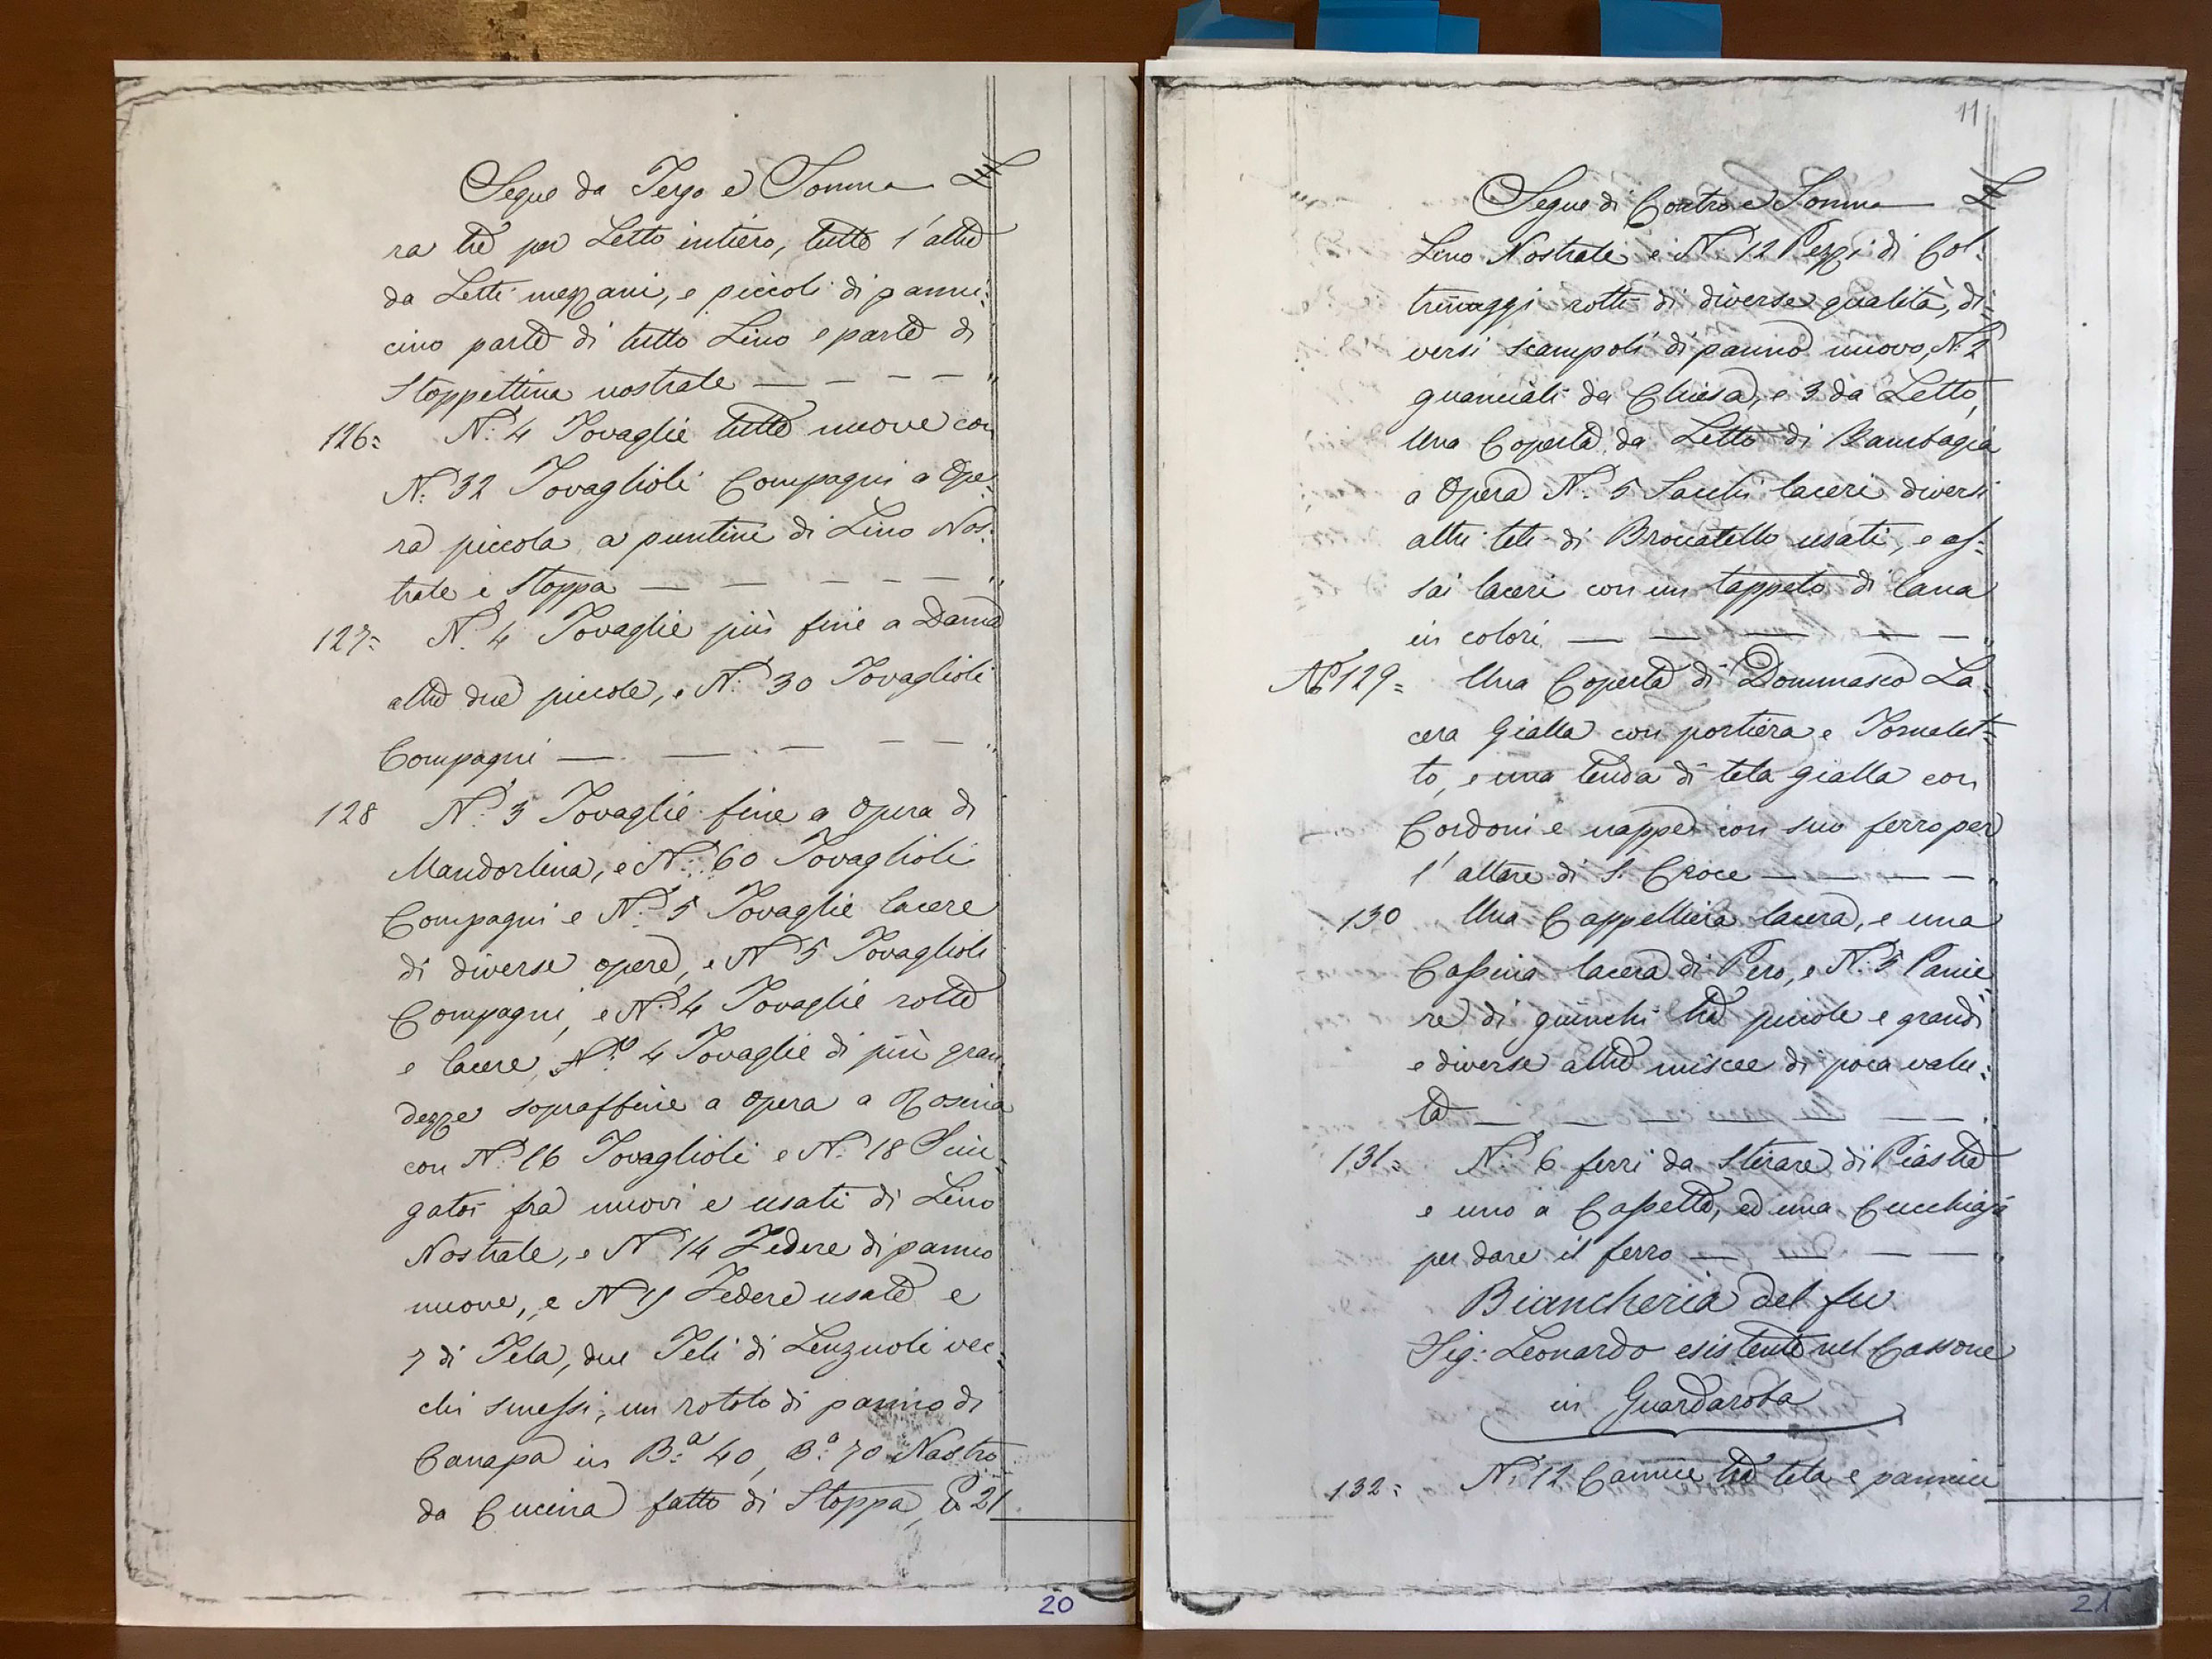 Segue da Tergo e Somma £
ra trè per Letto intiero, tutte l'altre
da Letti mezzani, e piccoli di panni:
cino parte di tutto Lino e parte di
Stoppettina nostrale — — — — "
126= N.° 4 Tovaglie tutte nuove con
N.° 32 Tovaglioli Compagni a Ope:
ra piccola a puntini di Lino Nos:
trale e Stoppa — — — — — "
127= N.° 4 Tovaglie più fine a Dama
altre due piccole, e N.° 30 Tovaglioli
Compagni — — — — — "
128 N.° 3 Tovaglie fine a Opera di
Mandorlina, e N.° 60 Tovaglioli
Compagni e N.° 5 Tovaglie lacere
di diverse opere, e N.° 5 Tovaglioli
Compagni, e N.° 4 Tovaglie rotte
e lacere, N.° 4 Tovaglie di più gran:
dezze sopraffine a opera a Rosina
con N.° 16 Tovaglioli e N.° 18 Sciu:
gatoi fra nuovi e usati di Lino
Nostrale, e N.° 14 Federe di panno
nuove, e N.° 15 Federe usate e
7 di Tela, due Teli di Lenzuoli vec:
chi smessi, un rotolo di panno di
Canapa in B.a 40, B.a 70 Nastro
da Cucina fatto di Stoppa, 21
20
11
Segue di Contro e Somma £
Lino Nostrale e N.° 12 Pezzi di Col:
trinaggi rotti di diverse qualità, di:
versi scampoli di panno nuovo, N.° 2
guanciali da Chiesa, e 3 da Letto,
Una Coperta da Letto di Bambagia
a Opera N.° 5 Sacchi laceri diversi
altri teli di Brocatello usati, e as:
sai laceri con un tappeto di lana
in colori — — — — — "
N.° 129= Una Coperta di Dommasco La:
cera Gialla con portiera e Tornalet:
to, e una tenda di tela gialla con
Cordoni e nappe con suo ferro per
l'altare di S. Croce — — — — "
130 Una Cappelliera lacera, e una
Cassina lacera di Pero, e N.° 5 Panie:
re di giunchi trà piccole e grandi
e diverse altre miscee di poca valu:
ta — — — — — "
131= N.° 6 ferri da stirare di Piastre
e uno a Cassetta, ed una Cucchiaja
per dare il ferro — — — — "
Biancheria del fu
Sig: Leonardo esistente nel Cassone
in Guardaroba
132= N.° 12 Camice trà tela e pannine
21